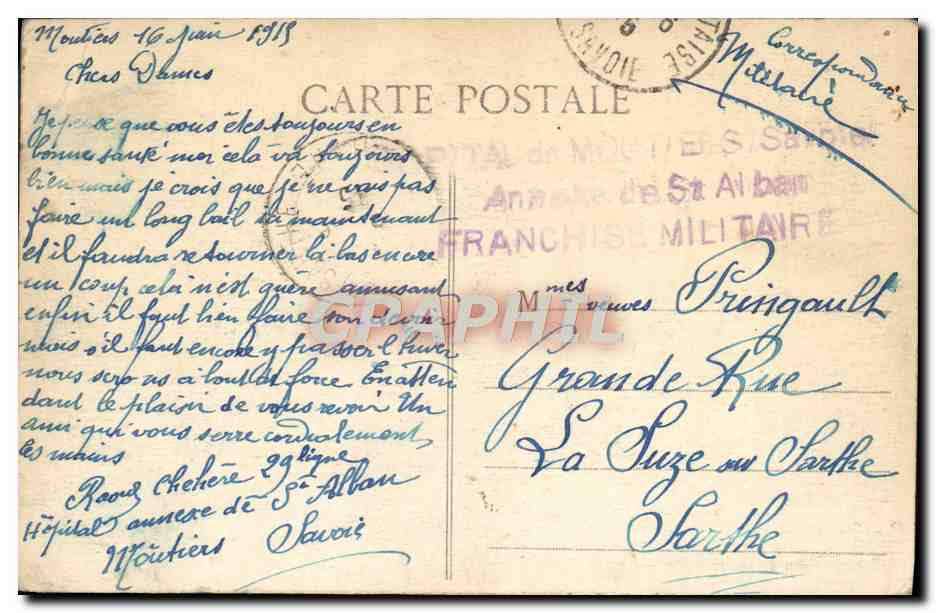 Moutiers 16 Juin 1915
Chers Dames
Je pense que vous êtes toujours en
bonne santé moi cela va toujours
bien mais je crois que je ne vais pas
faire un long bail ici maintenant
et il faudra retourner là-bas encore
un coup cela n'est guère amusant
enfin il faut bien faire son devoir
mais s'il faut encore y passer l'hiver
nous serons à bout de force En atten
dant le plaisir de vous revoir Un
ami qui vous serre cordialement
les mains
Raoul Chehère 29 ligne
Hôpital annexe de St Alban
Moutiers Savoie
CARTE POSTALE
TAISE
SAVOIE
Correspondance
Militaire
HOPITAL de MOUTIERS (Savoie)
Annexe de St Alban
FRANCHISE MILITAIRE
GRAPHIL
Mmes veuves Pringault
Grande Rue
La Suze sur Sarthe
Sarthe